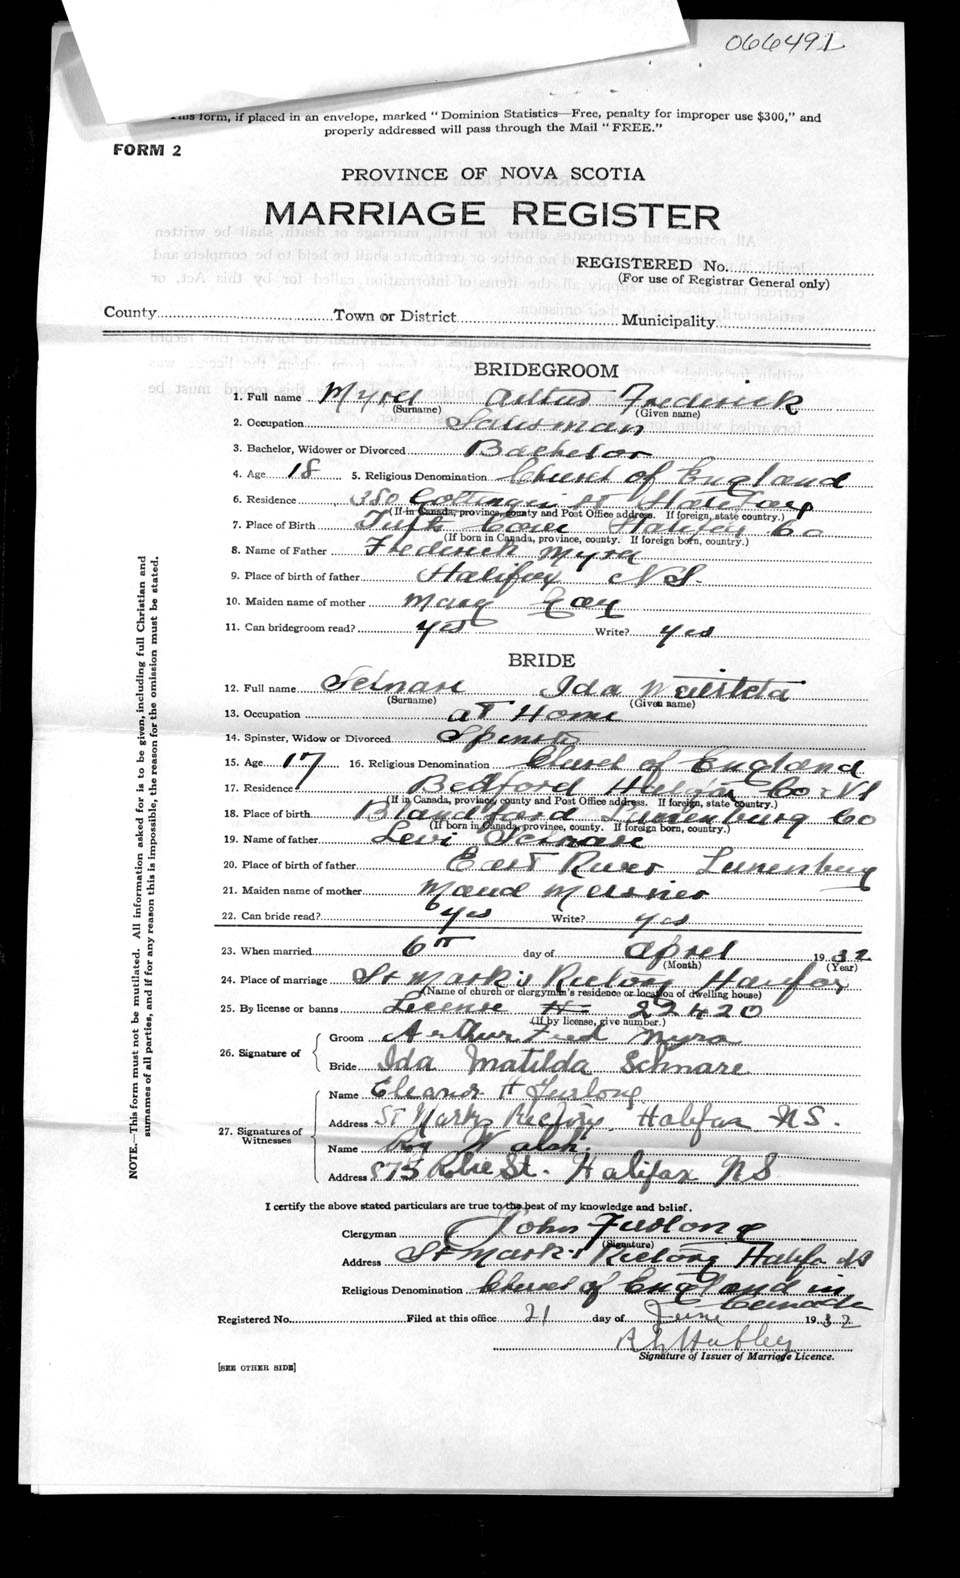 066491
This form, if placed in an envelope, marked "Dominion Statistics—Free, penalty for improper use $300," and
properly addressed will pass through the Mail "FREE."
FORM 2
PROVINCE OF NOVA SCOTIA
MARRIAGE REGISTER
REGISTERED No.
(For use of Registrar General only)
County Town or District Municipality
BRIDEGROOM
1. Full name Myra Arthur Frederick
(Surname) (Given name)
2. Occupation Salesman
3. Bachelor, Widower or Divorced Bachelor
4. Age 18 5. Religious Denomination Church of England
6. Residence 350 Gottingen St Halifax
(If in Canada, province, county and Post Office address. If foreign, state country.)
7. Place of Birth Tufts Cove Halifax Co
(If born in Canada, province, county. If foreign born, country.)
8. Name of Father Frederick Myra
9. Place of birth of father Halifax N S.
10. Maiden name of mother Mary Gay
11. Can bridegroom read? yes Write? yes
BRIDE
12. Full name Schnare Ida
(Surname) (Given name)
13. Occupation at Home
14. Spinster, Widow or Divorced Spinster
15. Age 17 16. Religious Denomination Church of England
17. Residence Bedford Halifax Co NS
(If in Canada, province, county and Post Office address. If foreign, state country.)
18. Place of birth Blandford Lunenburg Co
(If born in Canada, province, county. If foreign born, country.)
19. Name of father Levi Schnare
20. Place of birth of father East River Lunenburg
21. Maiden name of mother Maud Meisner
22. Can bride read? yes Write? yes
23. When married 6th day of April 1932
(Month) (Year)
24. Place of marriage St Mark's Rectory Halifax
(Name of church or clergyman's residence or location of dwelling house)
25. By license or banns License # 22420
(If by license, give number.)
26. Signature of
Groom Arthur Fred Myra
Bride Ida Matilda Schnare
27. Signatures of Witnesses
Name Eleanor H Furlong
Address St Marks Rectory, Halifax N.S.
Name Roy Walsh
Address 875 Robie St. Halifax NS
I certify the above stated particulars are true to the best of my knowledge and belief.
Clergyman John Furlong
(Signature)
Address St Mark's Rectory Halifax NS
Religious Denomination Church of England in
Canada
Registered No. Filed at this office 21 day of June 1932
Signature of Issuer of Marriage Licence.
[SEE OTHER SIDE]
NOTE.—This form must not be mutilated. All information asked for is to be given, including full Christian and
surnames of all parties, and if for any reason this is impossible, the reason for the omission must be stated.